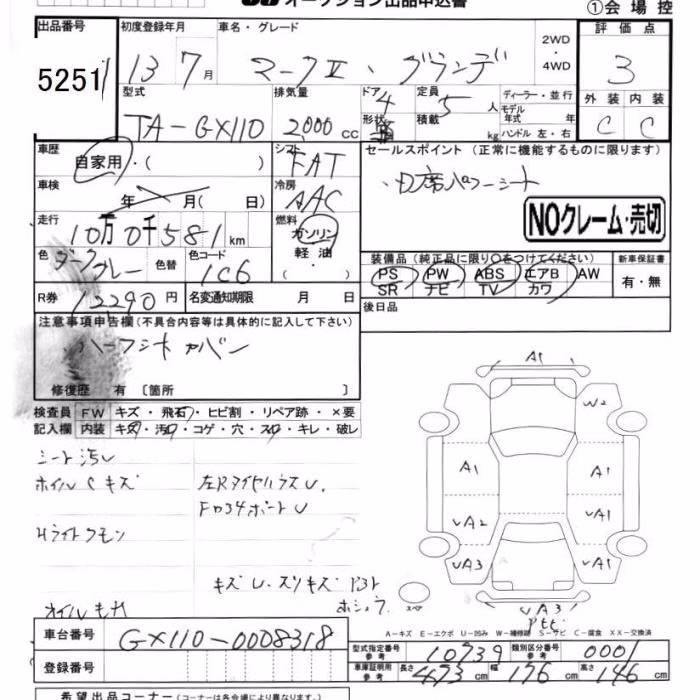 オークション出品申込書
①会場控
出品番号 初度登録年月 車名・グレード 2WD・4WD 評価点
5251 13 7月 マークⅡ、グランデ 3
型式 排気量 ドア 4 定員 5人 ディーラー・並行 外装 内装
TA-GX110 2000cc 形状 積載 kg モデル年式 年 ハンドル 左・右 C C
車歴 自家用・( ) シフト FAT セールスポイント (正常に機能するものに限ります)
車検 年 月( 日) 冷房 AAC ・D席パワーシート
NOクレーム・売切
走行 10万0千581km 燃料 ガソリン 軽油・( )
色 ダークグレー 色替 色コード 1C6 装備品 (純正品に限り○をつけてください) 新車保証書
PS PW ABS エアB AW 有・無
SR ナビ TV カワ
R券 12290円 名変通知期限 月 日 後日品
注意事項申告欄(不具合内容等は具体的に記入して下さい)
ハーフシートカバー
修復歴 有 〔箇所 〕
検査員 FW キズ・飛石・ヒビ割・リペア跡・×要
記入欄 内装 キズ・汚・コゲ・穴・スレ・キレ・破レ
シート汚レ
ホイルCキズ
Hライトクモリ
キズU.スリキズ
A1
W2
A1 A1
UA2 UA1
UA3 A1
UA3
A-キズ E-エクボ U-凹み W-補修跡 S-サビ C-腐食 XX-交換済
車台番号 GX110-0008318
型式指定番号 参考 10739 類別区分番号 参考 0001
登録番号 車庫証明用 参考 長さ 473cm 幅 176cm 高さ 146cm
希望出品コーナー(コーナーは各会場により異なります。)